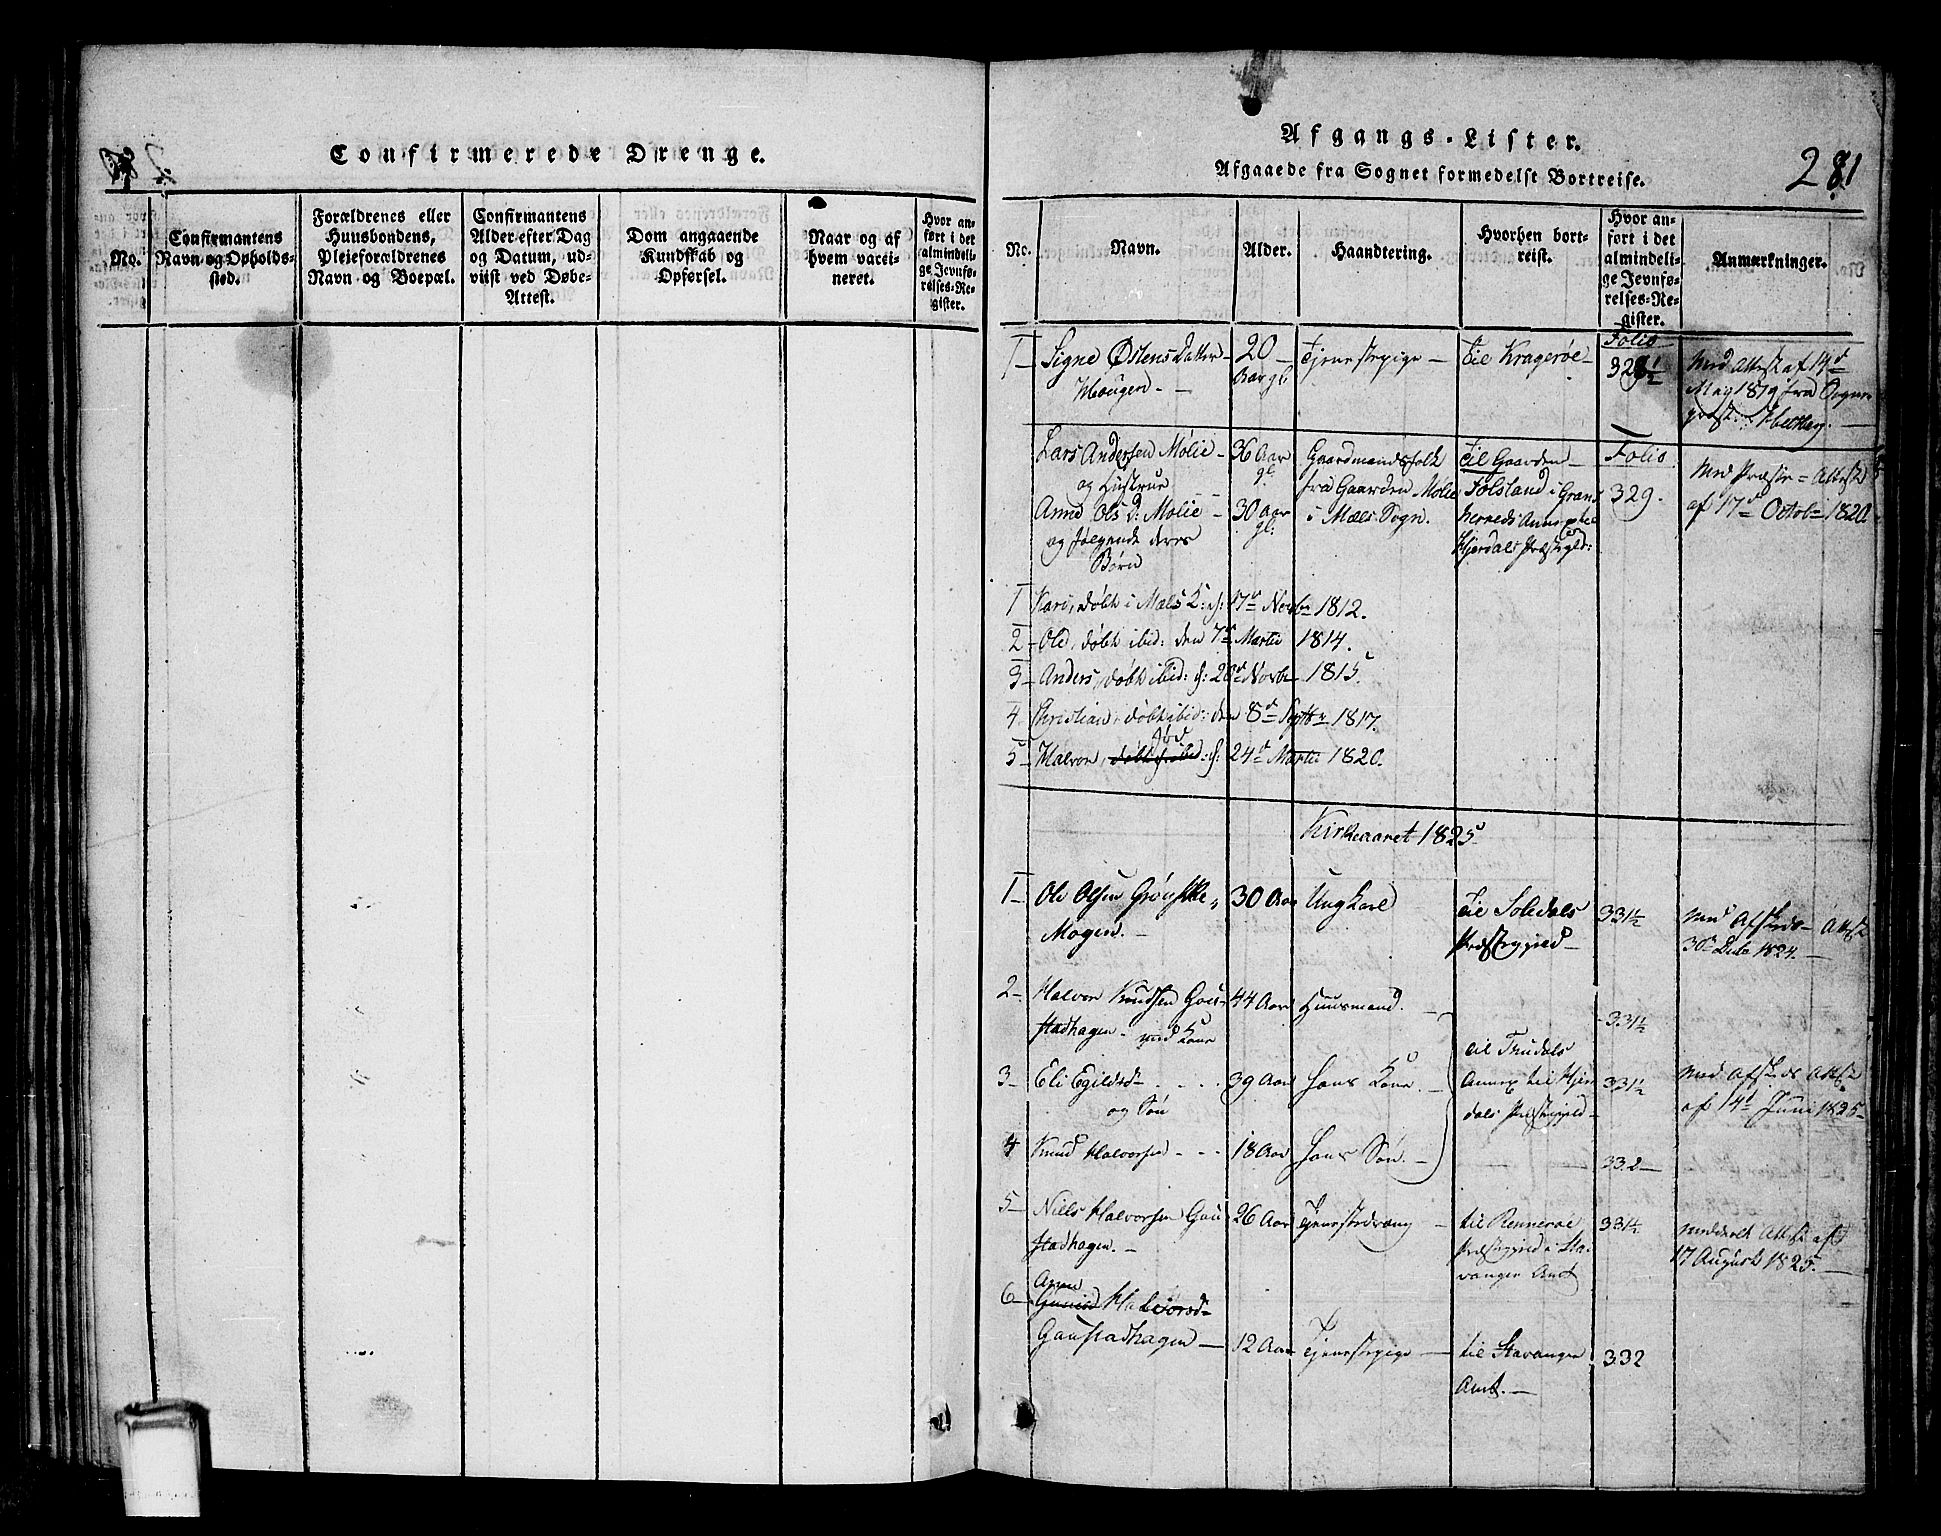 Confirmerede Drenge.
No.
Confirmantens
Navn og Opholds-
sted.
Forældrenes eller
Huusbondens,
Plejeforældrenes
Navn og Boepæl.
Confirmantens
Alder efter Dag
og Datum, ud-
viist ved Døbe-
Attest.
Dom angaaende
Kundskab og
Opførsel.
Naar og af
hvem vacci-
neret.
Hvor an-
ført i det
almindeli-
ge Jevnfø-
relses-Re-
gister.
Afgangs-Lister.
Afgaaede fra Sognet formedelst Bortreise.
281
No.
Navn.
Alder.
Haandtering.
Hvorhen bort-
reist.
Hvor an-
ført i det
almindeli-
ge Jevnfø-
relses-Re-
gister.
Anmærkninger.
1 Signe Østens Datter
Hougen
20
Aar gl
Tjenestepige
til Kragerøe
Folio
Med Attest af 14d
May 1819 fra Sogne
præst
Lars Andersen Mølie
og Hustrue
Anne Ols D: Molie
og følgende deres
Børn
36 Aar
gl.
30 aar
gl:
Gaardmandsfolk
fra Gaarden Molie
i Mæls Sogn.
til Gaarden
i Gran
herreds Annex til
Hjerdals Præstegield:
Folio
329.
Med Præste=Attest
af 17d Octob 1820
1 Kari, døbt i Mæls K: d: 17d Novbr 1812.
2 Ole, døbt ibid: den 7d Martii 1814.
3 Anders, døbt ibid: d: 20d Novbr 1815.
4 Christian, døbt ibid: den 8d Septbr 1817.
5 Halvor, død d: 24d Martii 1820.
Kirkeaaret 1825
1 Ole Olsen
Mogen.
30 Aar
Ungkarl
til Soledals
Præstegield
331½
Med Afskeds-Attest
30 Decbr 1824.
2 Halvor Knudsen Gau-
stadhagen med Kone
44 Aar
Huusmand.
331½
3 Eli Egildsd
og Søn
39 Aar
hans Kone
til
Annex til Hjer
dals Præstegield
331½
Med Afskeds Attest
af 14d Juni 1825
4 Knud Halvorsen
18 Aar
hans Søn.
332
5 Niels Halvorsen Gau-
stadhagen.
26 Aar
Tjenestedreng
til Rennesøe
Præstegield i Sta-
vanger Amt
331½
meddeelt Attest af
17 August 1825.
6
Halvorsd
Gaustadhagen
12 Aar
Tjenestepige
til Stavanger
Amt.
332